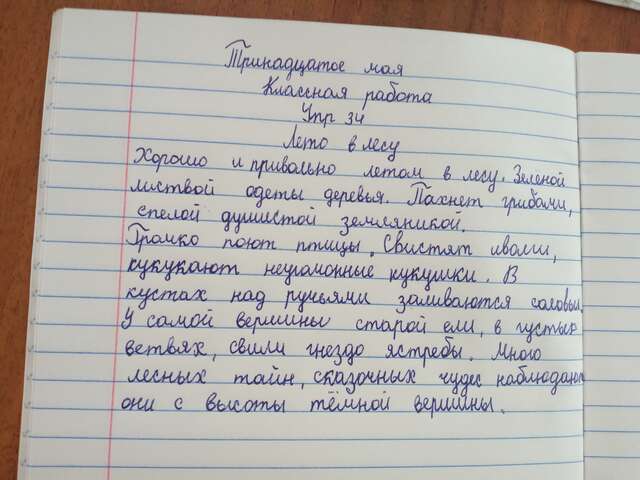 Тринадцатое мая
Классная работа
Упр 34
Лето в лесу
Хорошо и привольно летом в лесу. Зеленой
листвой одеты деревья. Пахнет грибами,
спелой душистой земляникой.
Громко поют птицы. Свистят иволги,
кукукают неугомонные кукушки. В
кустах над ручьями заливаются соловьи.
У самой вершины старой ели, в густых
ветвях, свили гнездо ястребы. Много
лесных тайн, сказочных чудес наблюдают
они с высоты тёмной вершины.